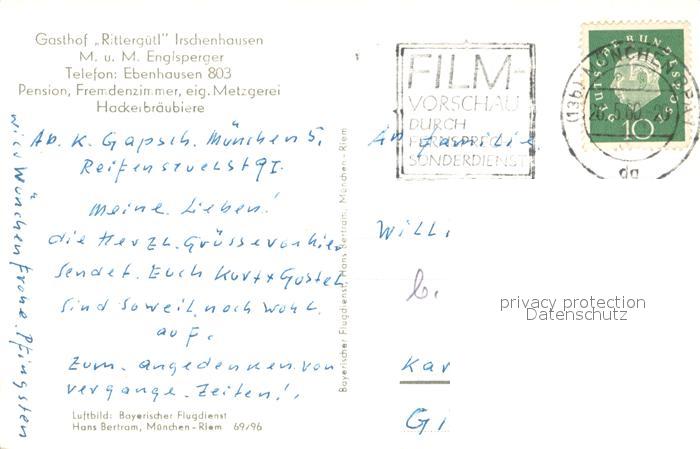 Gasthof „Rittergütl" Irschenhausen
M. u. M. Englsperger
Telefon: Ebenhausen 803
Pension, Fremdenzimmer, eig. Metzgerei
Hackerbräubiere
Ab. K. Gapsch. München 5.
Reifenstuelst 9 I.
Meine. Lieben!
die Herzl. Grüsse von hier
Sendet. Euch Kurt + Gustel
Sind soweit noch wohl.
auf.
Zum. angedenken. von
vergange. Zeiten!.
wir Wünchen Frohe. Pfingsten
Luftbild: Bayerischer Flugdienst
Hans Bertram, München-Riem 69/96
Bayerischer Flugdienst, Hans Bertram, München-Riem
FILM-
VORSCHAU
DURCH
FERNSPRECH
SONDERDIENST
(13b) MÜNCHEN
26.5.60
da
DEUTSCHE BUNDESPOST
10
An Familie
Willi
b.
Kar
Gi
privacy protection
Datenschutz